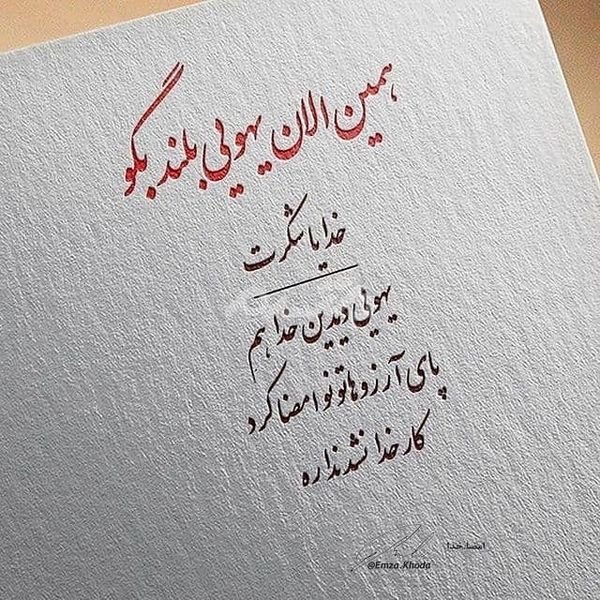 همین الان یهویی بلند بگو
خدایا شکرت
یهویی دیدین خدا هم
پای آرزوهاتونو امضا کرد
کار خدا نشد نداره
امضا.خدا
@Emza.Khoda